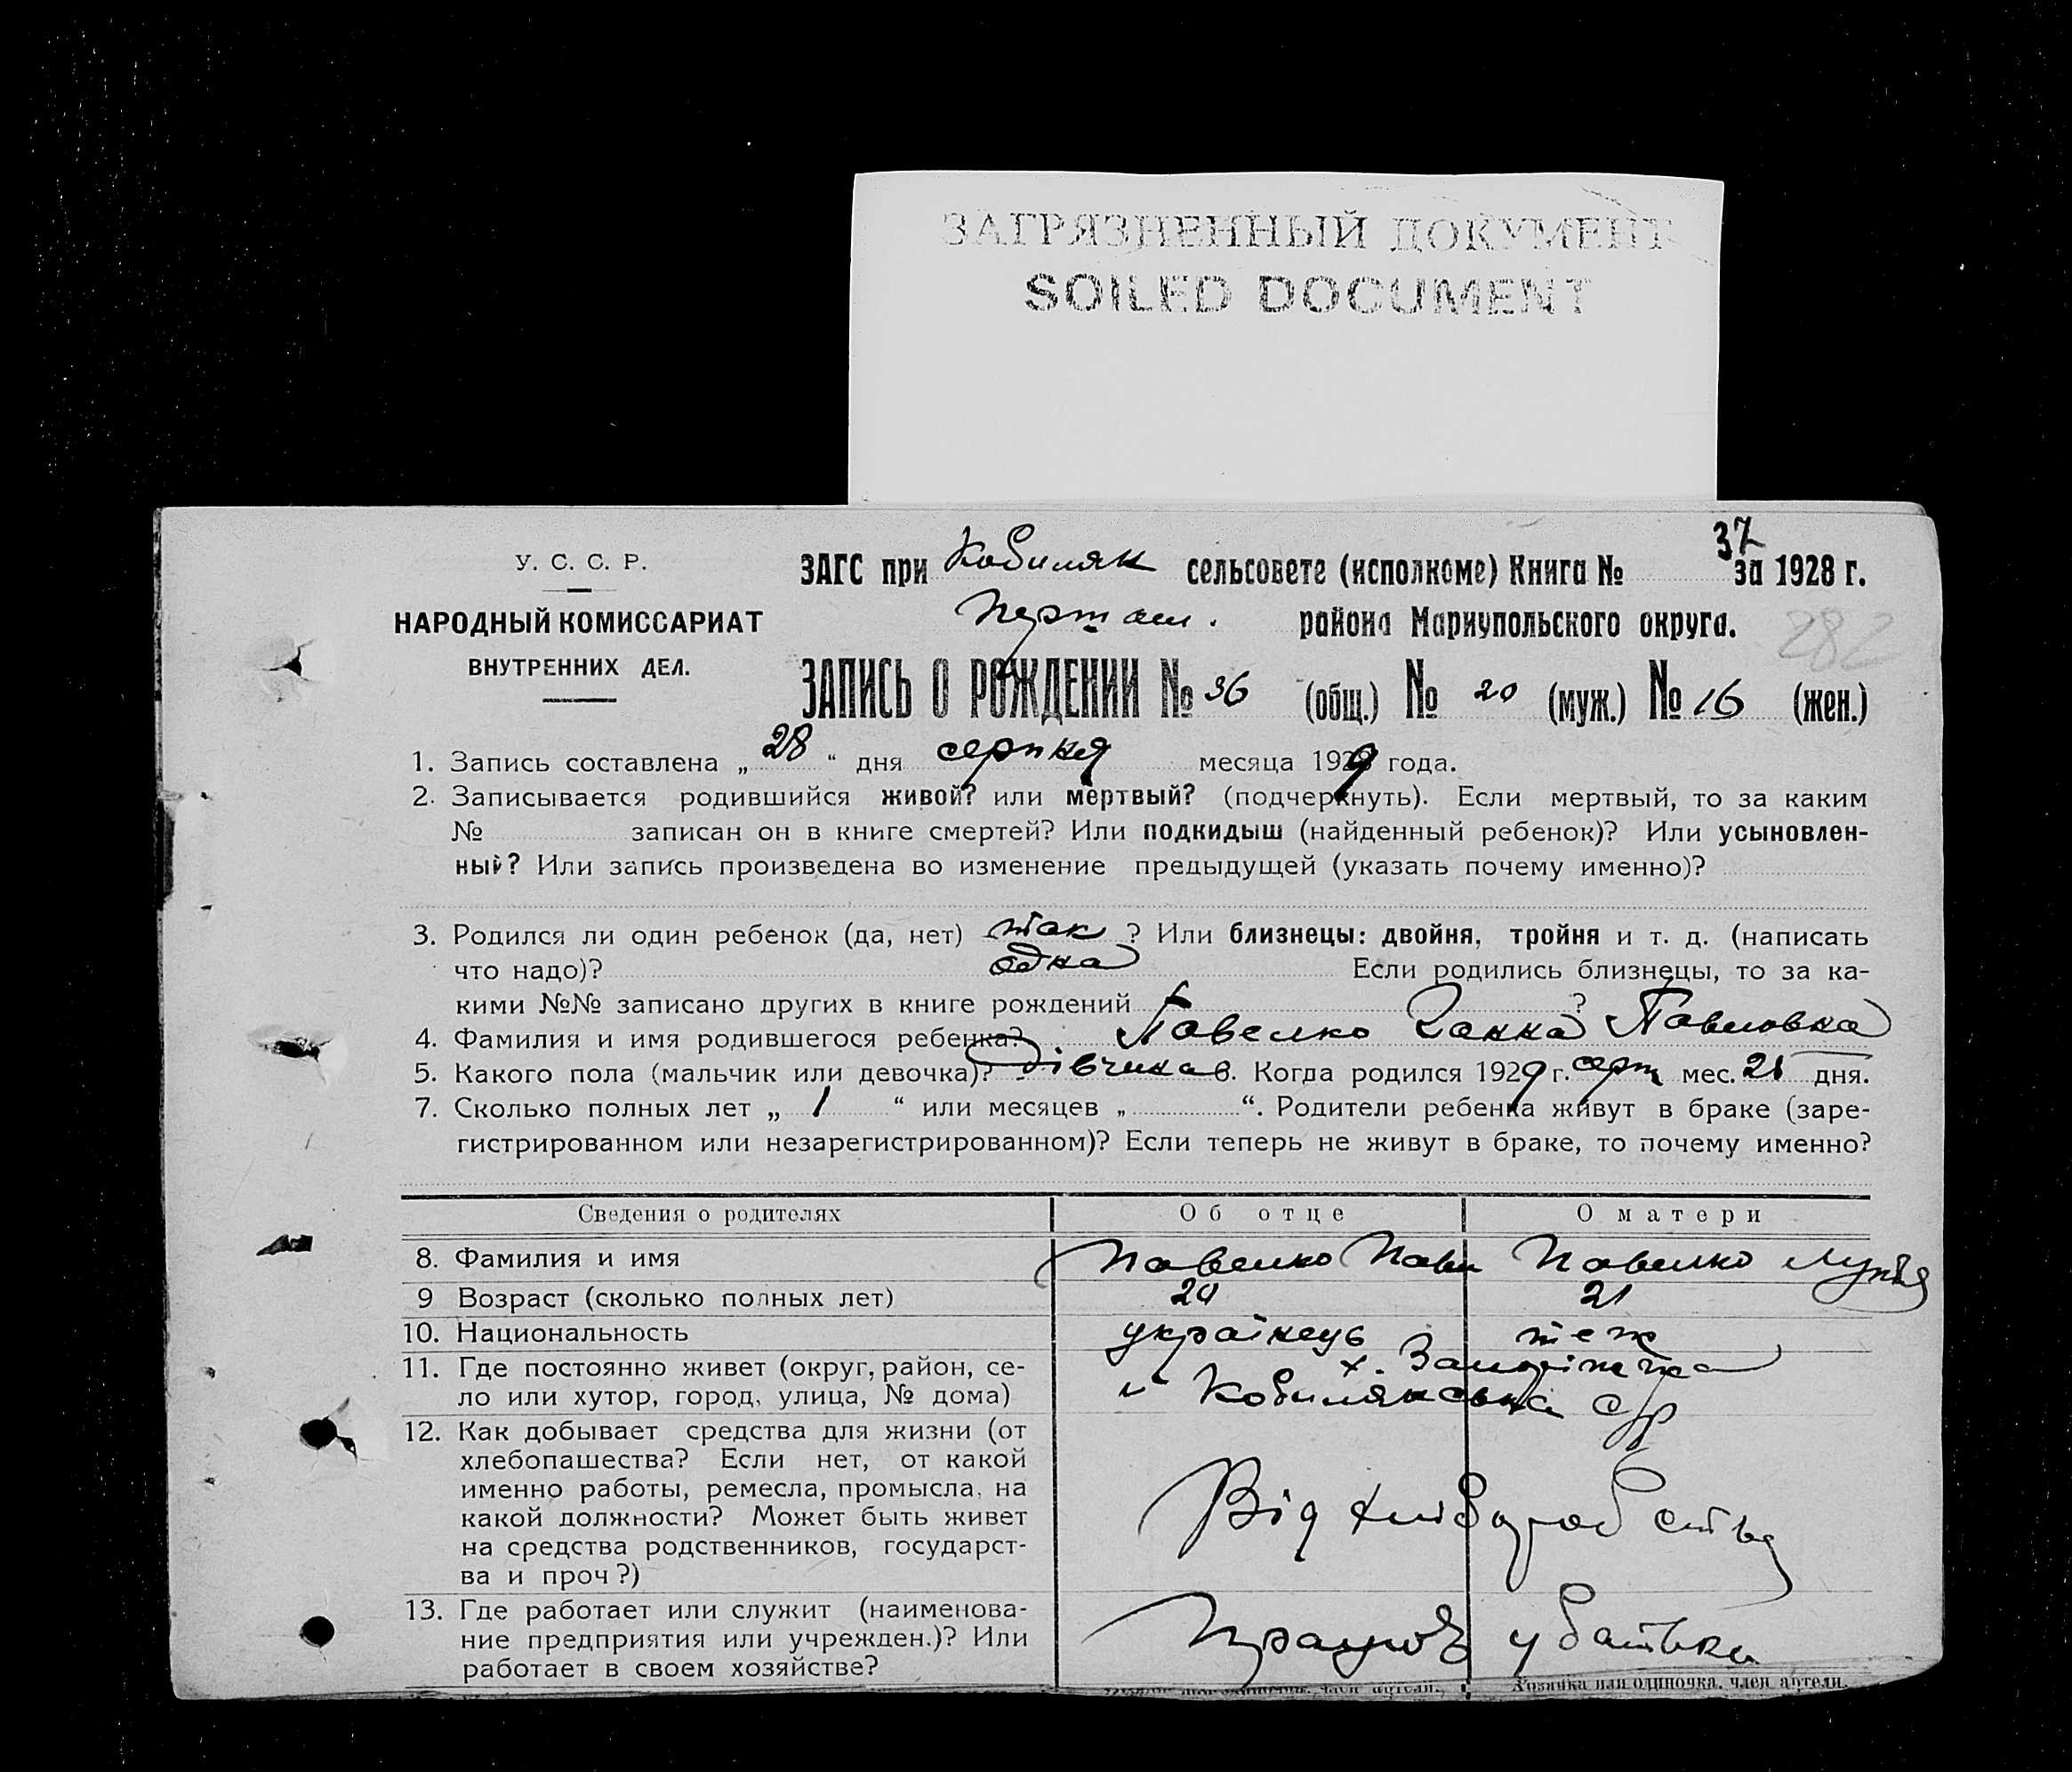 ЗАГРЯЗНЕННЫЙ ДОКУМЕНТ
SOILED DOCUMENT
У. С. С. Р.
НАРОДНЫЙ КОМИССАРИАТ
ВНУТРЕННИХ ДЕЛ.
37
ЗАГС при Кобиляк сельсовете (исполкоме) Книга № за 1928 г.
района Мариупольского округа.
282
ЗАПИСЬ О РОЖДЕНИИ № 36 (общ.) № 20 (муж.) № 16 (жен.)
1. Запись составлена „ 28 “ дня серпня месяца 1929 года.
2. Записывается родившийся живой? или мертвый? (подчеркнуть). Если мертвый, то за каким
№ записан он в книге смертей? Или подкидыш (найденный ребенок)? Или усыновлен-
ный? Или запись произведена во изменение предыдущей (указать почему именно)?
3. Родился ли один ребенок (да, нет) так ? Или близнецы: двойня, тройня и т. д. (написать
что надо)? одна Если родились близнецы, то за ка-
кими №№ записано других в книге рождений ?
4. Фамилия и имя родившегося ребенка? Павелко Ганна Павловна
5. Какого пола (мальчик или девочка)? дівчина 6. Когда родился 1929 г. серп мес. 21 дня.
7. Сколько полных лет „ 1 “ или месяцев „ “. Родители ребенка живут в браке (заре-
гистрированном или незарегистрированном)? Если теперь не живут в браке, то почему именно?
Сведения о родителях Об отце О матери
8. Фамилия и имя Павелко Павл Павелко
9 Возраст (сколько полных лет) 20 21
10. Национальность українець теж
11. Где постоянно живет (округ, район, се-
ло или хутор, город, улица, № дома)
х.
Кобиляцька с/р
12. Как добывает средства для жизни (от
хлебопашества? Если нет, от какой
именно работы, ремесла, промысла, на
какой должности? Может быть живет
на средства родственников, государст-
ва и проч?)
Від хліборобства
13. Где работает или служит (наименова-
ние предприятия или учрежден.)? Или
работает в своем хозяйстве?
Працює у батька
Хозяйка или одиночка, член артели.